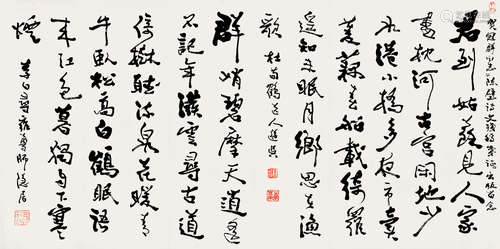 君到姑蘇見人家
盡枕河古宮閒地少
水港小橋多夜市賣
菱藕春船載綺羅
遙知未眠月鄉思在漁
歌 杜荀鶴送人遊吳
群峭碧摩天逍遙
不記年撥雲尋古道
倚樹聽流泉花暖青
牛臥松高白鶴眠語
來江色暮獨自下寒
煙 李白尋雍尊師隱居